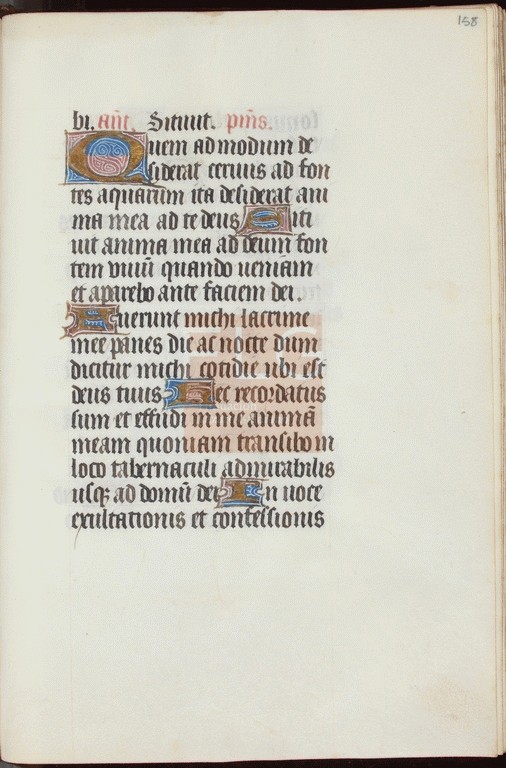 158
bi. añt. Sitiuit. pῑns.
Quem ad modum de
siderat ceruus ad fon
tes aquarum ita desiderat ani
ma mea ad te deus Siti
uit anima mea ad deum fon
tem uiuū quando ueniam
et aparebo ante faciem dei.
Fuerunt michi lacrime
mee panes die ac nocte dum
dicitur michi cotidie ubi est
deus tuus Hec recordatus
sum et effudi in me animā
meam quoniam transibo in
loco tabernaculi admirabilis
usqꝫ ad domū dei In uoce
exultationis et confessionis